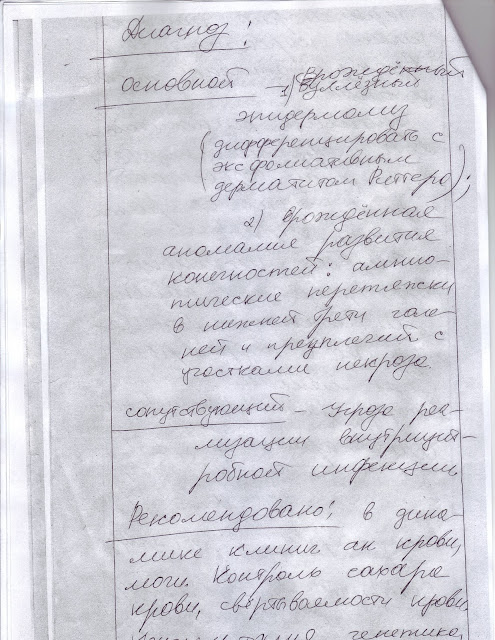 Диагноз:
основной - 1) Врождённый
буллёзный
эпидермолиз
(дифференцировать с
эксфолиативным
дерматитом Риттера);
2) Врождённая
аномалия развития
конечностей: амнио-
тические перетяжки
в нижней трети голе-
ней и предплечий с
участками некроза.
сопутствующий - Угроза реа-
лизации внутриут-
робной инфекции
Рекомендовано: в дина-
мике клинич ан. крови,
мочи. Контроль сахара
крови, свёртываемости крови,
генетика,